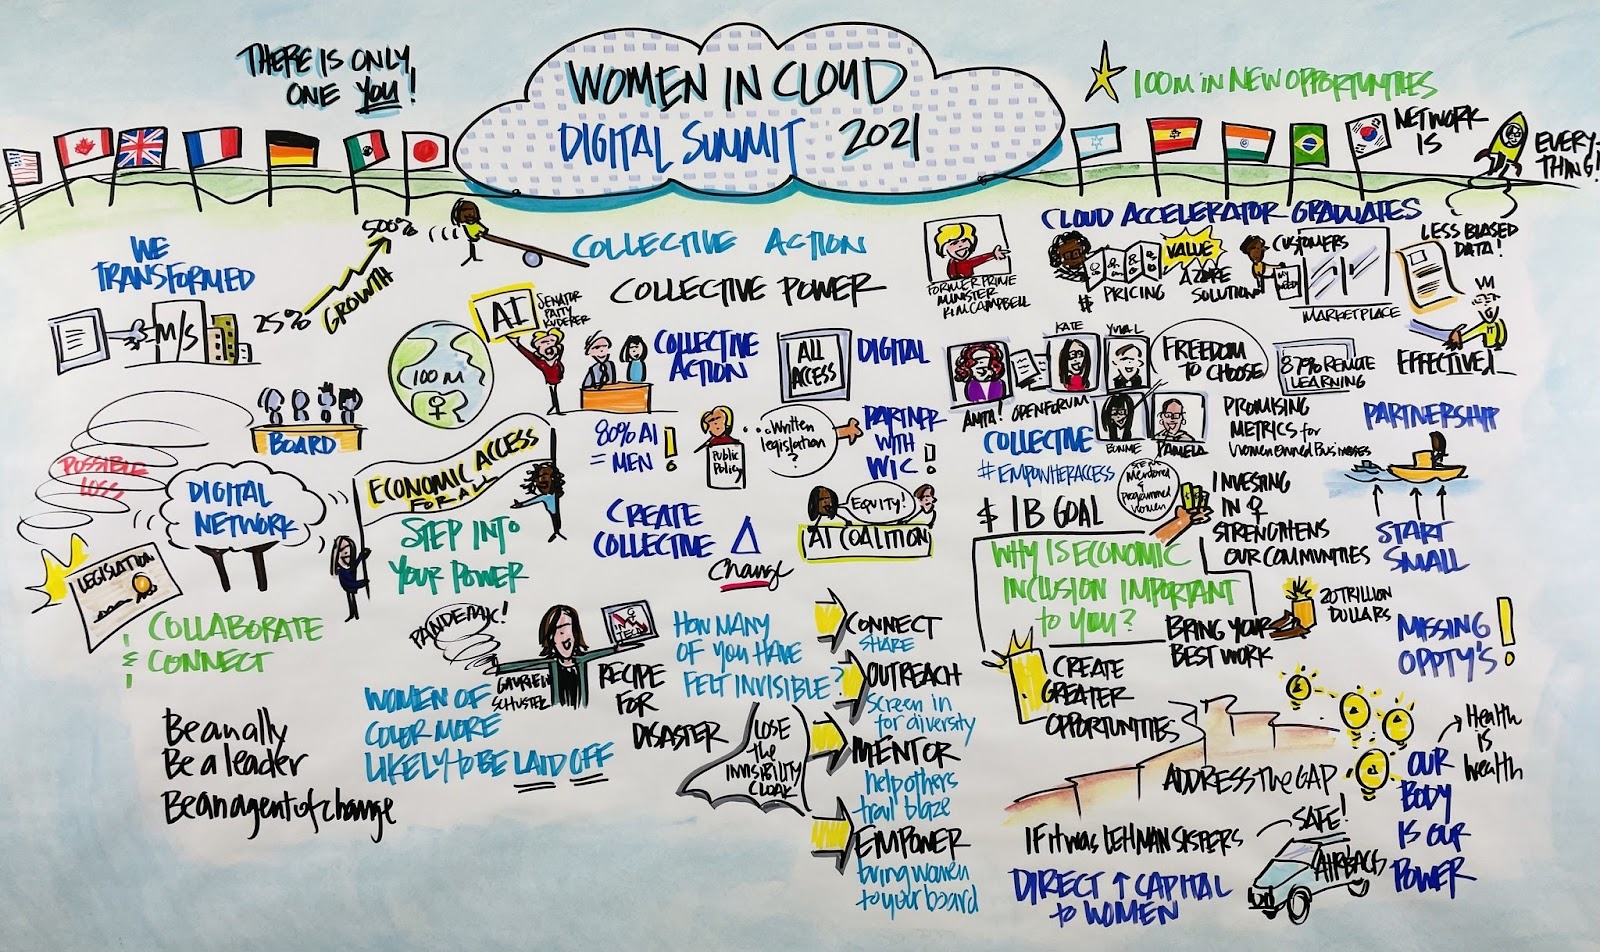 THERE IS ONLY
ONE YOU!
WOMEN IN CLOUD
DIGITAL SUMMIT 2021
100M IN NEW OPPORTUNITIES
NETWORK
IS
EVERY-
THING!
WE
TRANSFORMED
M/S
25%
GROWTH
500%
COLLECTIVE ACTION
COLLECTIVE POWER
AI
SENATOR
PATTY
KUDERER
100 M
COLLECTIVE
ACTION
ALL
ACCESS
DIGITAL
FORMER PRIME
MINISTER
KIM CAMPBELL
CLOUD ACCELERATOR GRADUATES
$
PRICING
VALUE
AZURE
SOLUTION
CUSTOMERS
MARKETPLACE
LESS BIASED
DATA!
IT
EFFECTIVE
KATE
FREEDOM
TO CHOOSE
87% REMOTE
LEARNING
OPEN FORUM
BONNIE
PAMELA
COLLECTIVE
#EMPOWHERACCESS
PROMISING
METRICS for
Women Owned Businesses
PARTNERSHIP
START
SMALL
BOARD
POSSIBLE
LOSS
DIGITAL
NETWORK
LEGISLATION
COLLABORATE
& CONNECT
ECONOMIC ACCESS
FOR ALL
STEP INTO
YOUR POWER
80% AI
= MEN!
Public
Policy
...Written
legislation
?
PARTNER
WITH
WIC!
CREATE
COLLECTIVE Δ
Change
EQUITY!
AI COALITION
$ 1B GOAL
STEM
Mentored
&
Programmed
Women
INVESTING
IN ♀
STRENGTHENS
OUR COMMUNITIES
WHY IS ECONOMIC
INCLUSION IMPORTANT
TO YOU?
BRING YOUR
BEST WORK
20 TRILLION
DOLLARS
MISSING
OPPTY'S!
PANDEMIC!
SCHUSTER
WOMEN OF
COLOR MORE
LIKELY to BE LAID OFF
RECIPE
FOR
DISASTER
HOW MANY
OF YOU HAVE
FELT INVISIBLE?
LOSE
the
INVISIBILITY
CLOAK
CONNECT
SHARE
OUTREACH
Screen in
for diversity
MENTOR
help others
trail blaze
EMPOWER
bring women
to your board
CREATE
GREATER
OPPORTUNITIES
ADDRESS the GAP
Be an ally
Be a leader
Be an agent of change
IF it was LEHMAN SISTERS
DIRECT ↑ CAPITAL
to WOMEN
SAFE!
AIRBAGS
OUR
BODY
IS OUR
POWER
Health
is
wealth